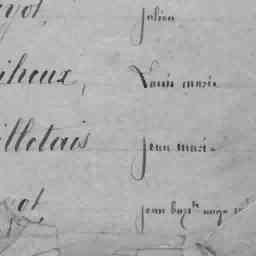 yot, julien
iheux, Louis marie
illetais jean marie
yot jean bap.te ange